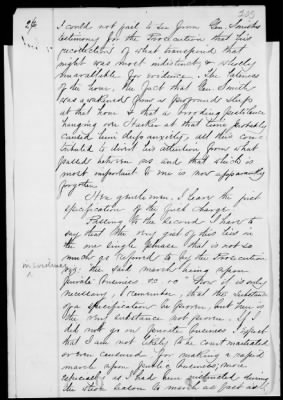 26
I could not fail to see from Gen. Smith's
testimony for the prosecution that his
recollection of what transpired that
night was most indistinct, & wholly
unavailable for evidence. The lateness
of the hour, the fact that Gen. Smith
was awakened from a profound sleep
at that hour & that a brooding pestilence
hanging on at that time
caused him deep anxiety, all this con-
tributed to divert his attention from what
passed between us and that which is
most important to me is now apparently
forgotten.
Here gentlemen, I leave the first
specification of the first charge.
Passing to the second I have to
say that the very gist of this lies in
the one single phrase that is not so
much as referred to by the prosecution
viz: the said march being upon
private business. Now it is only
necessary, I remember, that the substance
of a specification be proven but here is
the very substance not proven. If I
did not go on private business I infer
that I am not likely to be court martialed
or even censured for making a rapid
march upon public business; more
especially as I had been instructed during
the season to march as fast as I